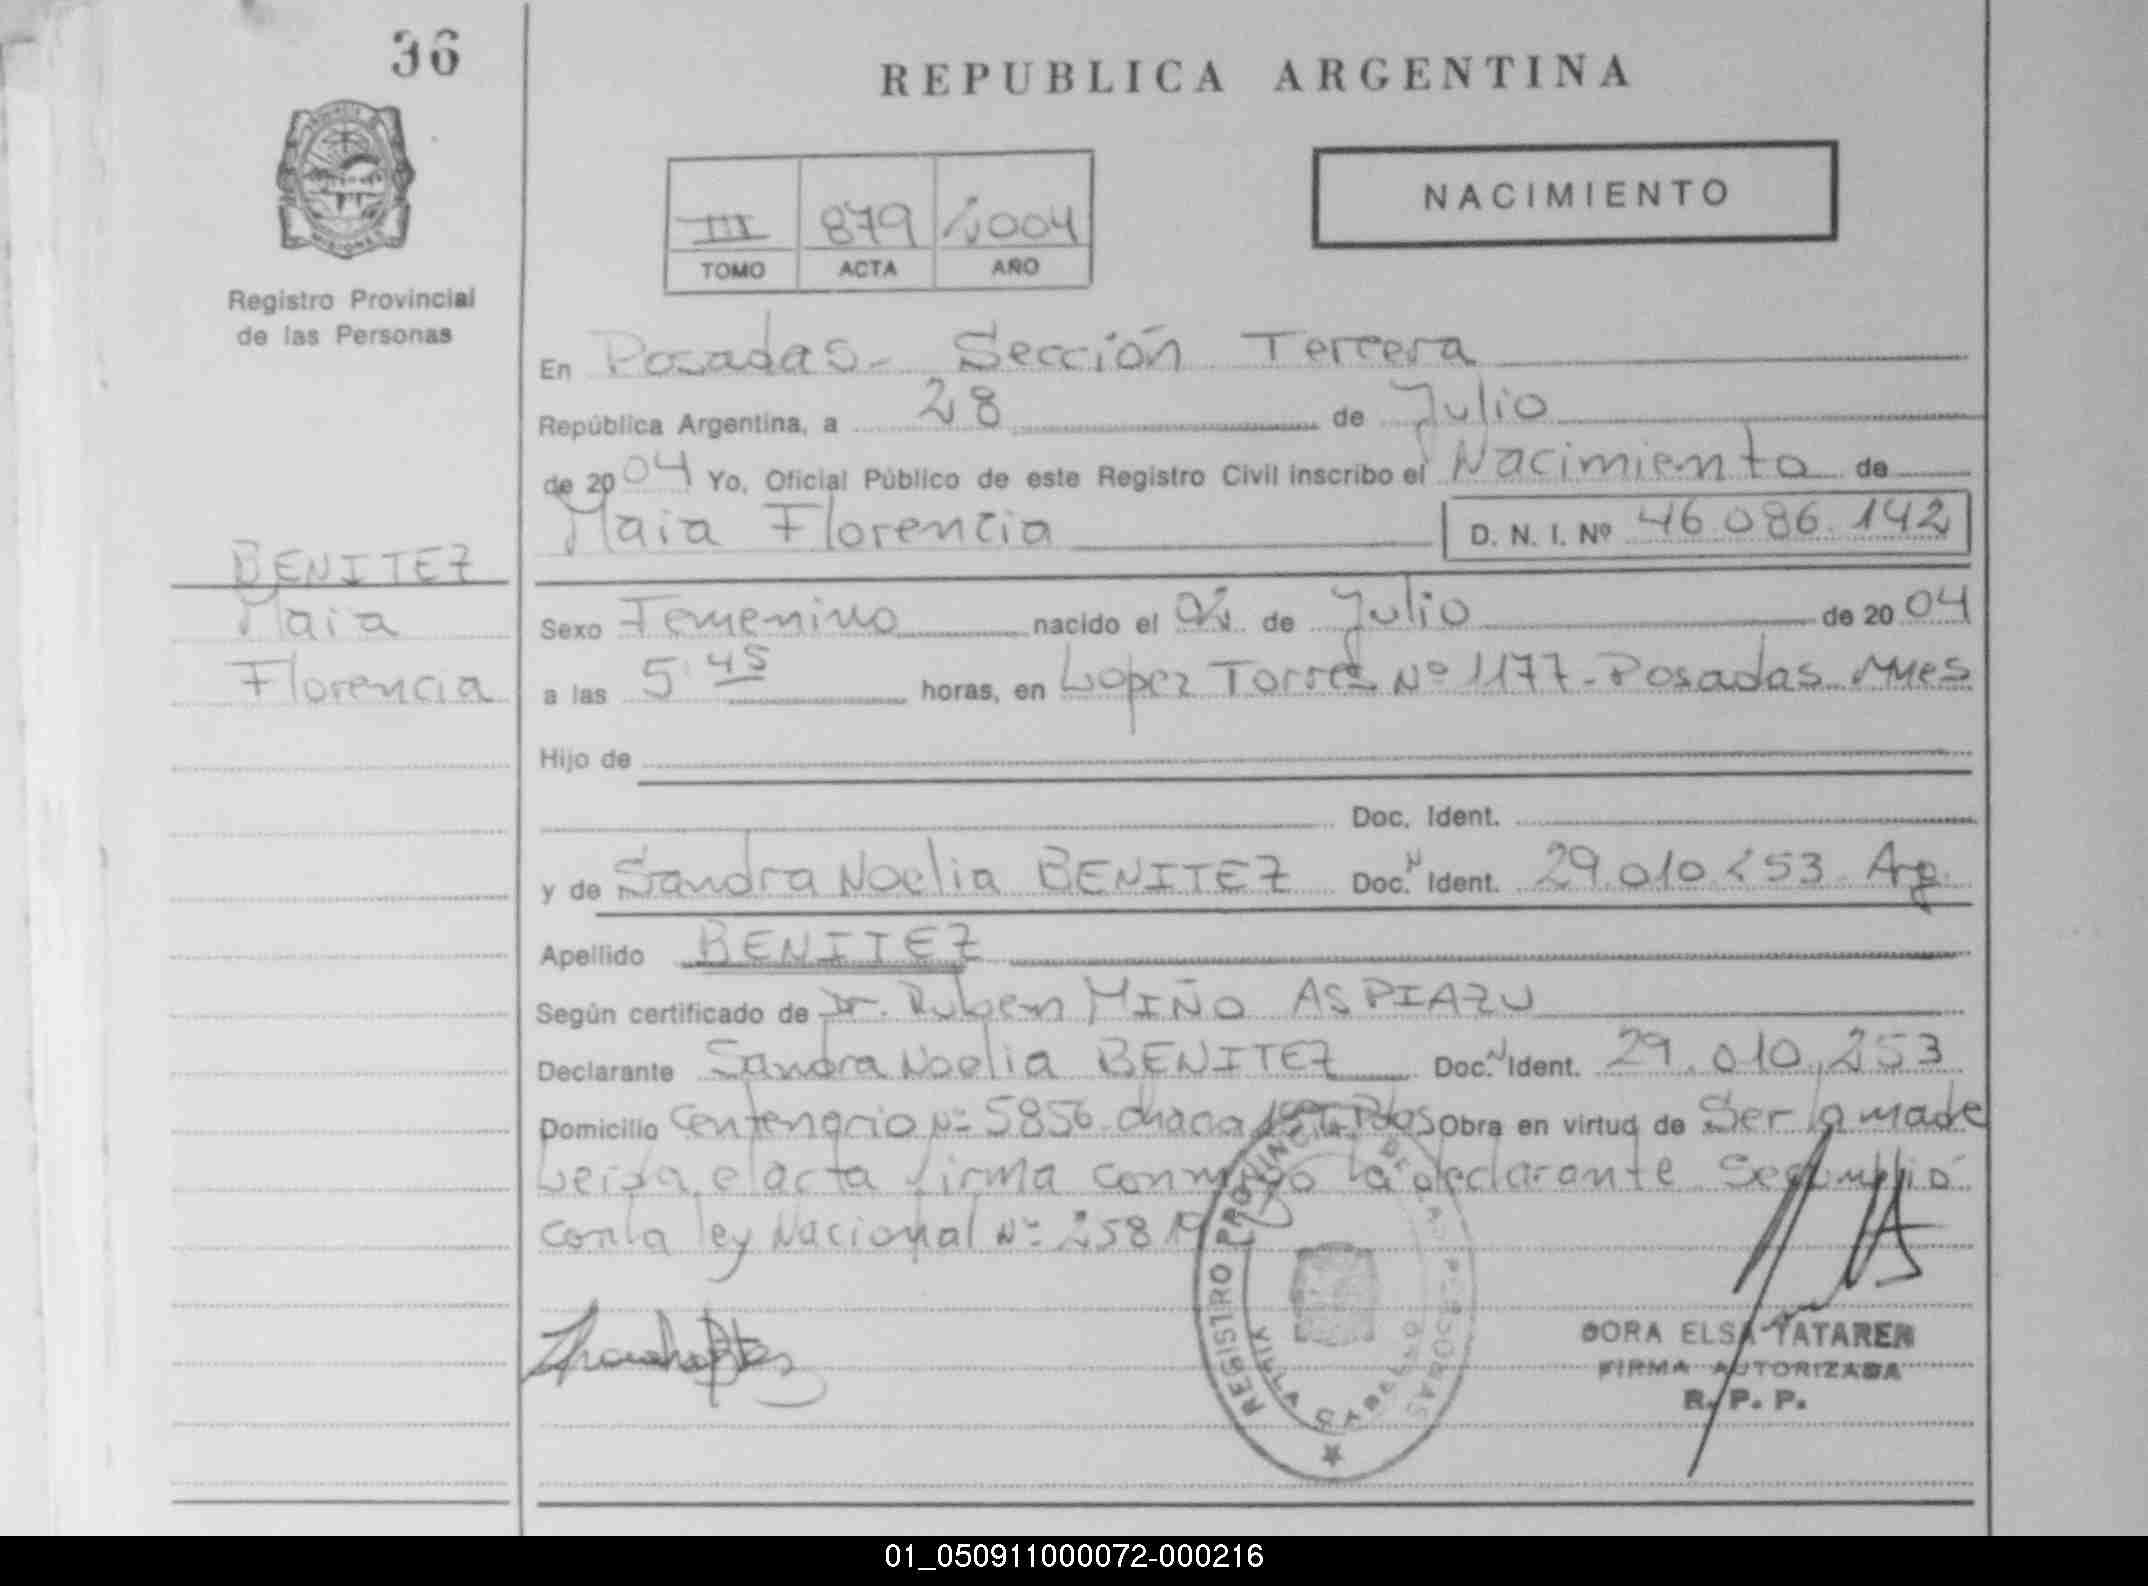 36
REPUBLICA ARGENTINA
NACIMIENTO
III 879 2004
TOMO ACTA AÑO
Registro Provincial
de las Personas
En Posadas - Sección Tercera
República Argentina, a 28 de Julio
de 2004 Yo, Oficial Público de este Registro Civil inscribo el Nacimiento de
Maia Florencia D. N. I. Nº 46.086.142
BENITEZ
Maia
Florencia
Sexo Femenino nacido el 02 de Julio de 2004
a las 5:45 horas, en Lopez Torres Nº 1177 - Posadas Mnes
Hijo de
Doc. Ident.
y de Sandra Noelia BENITEZ Doc. N Ident. 29.010.253 Arg.
Apellido BENITEZ
Según certificado de Dr. Ruben MIÑO ASPIAZU
Declarante Sandra Noelia BENITEZ Doc. N Ident. 29.010.253
Domicilio Centenario Nº 5856 chacra Pdas Obra en virtud de Ser la madre
Leida el acta firma conmigo la declarante Se cumplió
con la ley Nacional Nº 258
REGISTRO PROVINCIAL DE LAS PERSONAS
VILLA CABELLO
DORA ELSA TATAREN
FIRMA AUTORIZADA
R. P. P.
01_050911000072-000216